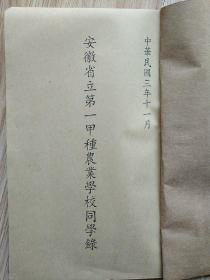 中華民國三年十一月
安徽省立第一甲種農業學校同學錄